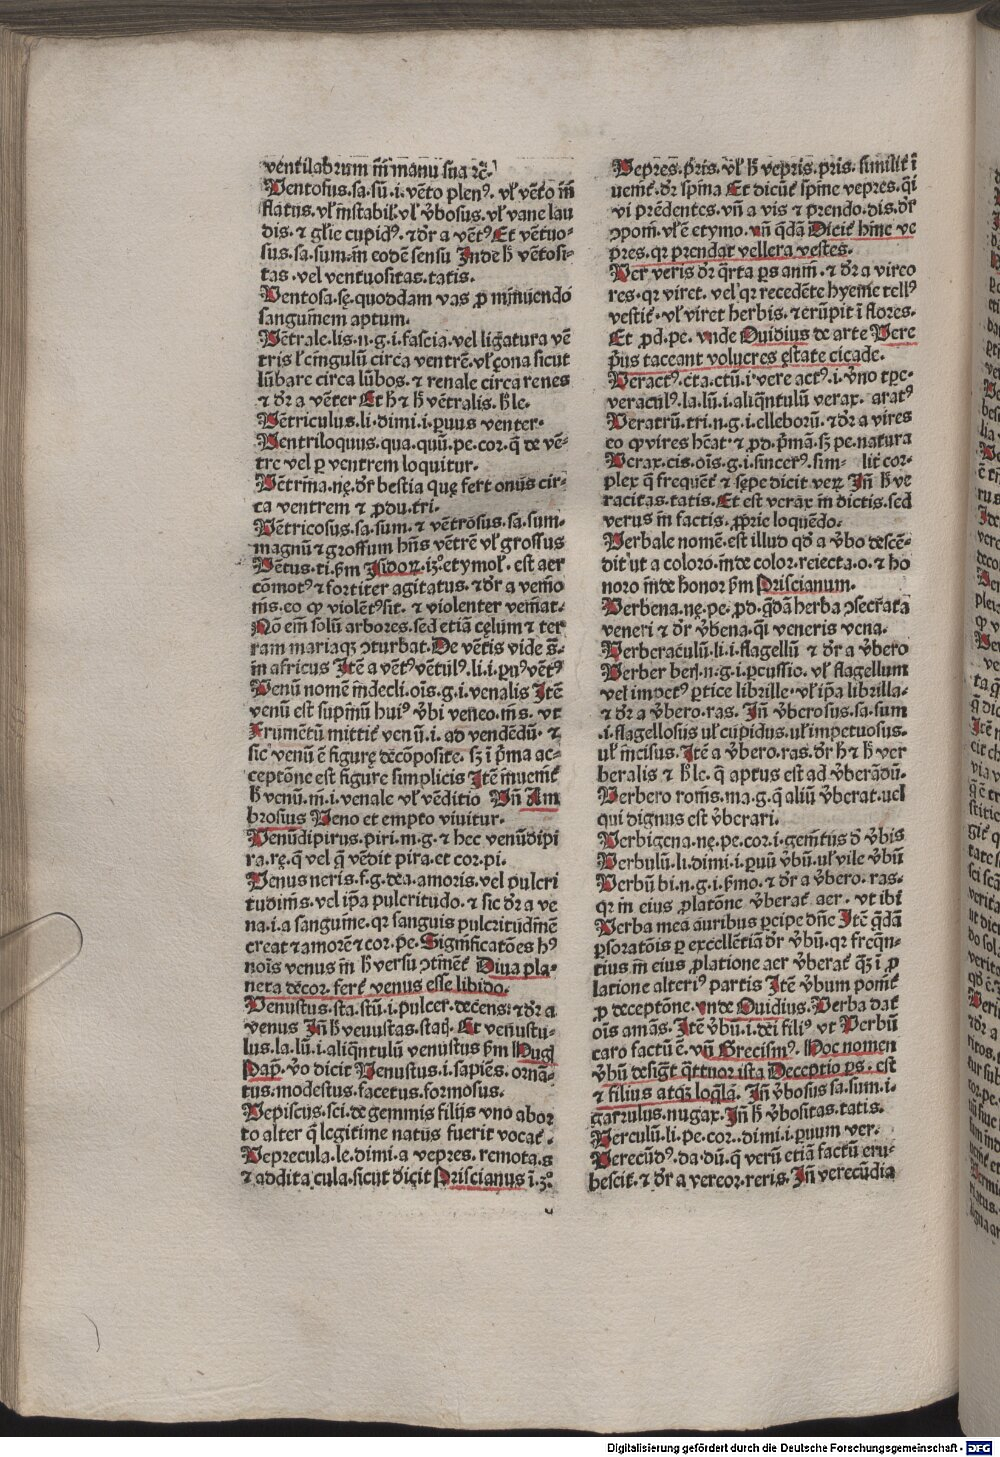 ventilabrum in manu sua rc̄.
Ventosus.sa.sū.i.vēto plenꝰ. vľ vēto in
flatus.vľ instabil.vľ v̓bosus.vľ vane lau
dis.⁊ gľie cupidꝰ.⁊ dr̄ a vētꝰ Et vētuo-
sus.sa.sum.in eodē sensu Inde h̄ vētosi-
tas.vel ventuositas.tatis.
Ventosa.sę.quoddam vas ꝓ minuendo
sanguinem aptum.
Vētrale.lis.n.g.i.fascia.vel ligatura vē
tris ľ cingulū circa ventrē.vľ çona sicut
lūbare circa lūbos.⁊ renale circa renes
⁊ dr̄ a vēter Et h̄ ⁊ h̄ vētralis.h̄ le.
Vētriculus.li.dimi.i.ꝑuus venter.
Ventriloquus.qua.quū.pe.cor.q̄ de vē-
tre vel ꝑ ventrem loquitur.
Vētrina.nę.dr̄ bestia quę fert onus cir-
ca ventrem ⁊ ꝓdu.tri.
Vētricosus.sa.sum.⁊ vētrosus.sa.sum.
magnū ⁊ grossum hn̄s vētrē vľ grossus
Vētus.ti.ẜm Isidoꝝ.iʒ.etymoľ.est aer
cōmotꝰ ⁊ fortiter agitatus.⁊ dr̄ a venio
nis.eo ꝙ violētꝰ sit.⁊ violenter veniat.
Nō em̄ solū arbores.sed etiā cęlum ⁊ ter
ram mariaqꝫ ꝯturbat.De vētis vide s̄.
in africus Itē a vētꝰ vētulꝰ.li.i.ꝑuꝰ vētꝰ
Venū nomē indecli.oīs.g.i.venalis Itē
venū est supinū huiꝰ v̓bi veneo.nis.vt
Frumētū mittit̄ venū.i.ad vendēdū.⁊
sic venū ē figurę decōposite.sʒ i pͥma ac-
ceptōne est figure simplicis Itē inuenit̄
h̄ venū.ni.i.venale vľ vēditio Vn̄ Am
brosius Veno et empto viuitur.
Venūdipirus.piri.m.g.⁊ hec venūdipi
ra.rę.q̄ vel q̄ vēdit pira.et cor.pi.
Venus neris.f.g.dea.amoris.vel pulcri
tudinis.vel ip̄a pulcritudo.⁊ sic dr̄ a ve
na.i.a sanguine.qr sanguis pulcritudinē
creat ⁊ amorē ⁊ cor.pe.Significatōes hꝰ
nois venus in h̄ versu ꝯtinēt Diua pla-
neta decor.fert̄ venus esse libido.
Venustus.sta.stū.i.pulcer.decens.⁊ dr̄ a
venus In̄ h̄ venustas.statis.Et venustu-
lus.la.lū.i.aliqn̄tulū venustus ẜm Hugͥ
Pap̄.v̊o dicit Venustus.i.sapiēs.ornā-
tus.modestus.facetus.formosus.
Vepiscus.sci.de gemmis filijs vno abor
to alter q̄ legitime natus fuerit vocat̄.
Veprecula.le.dimi.a vepres.remota.s
⁊ addita cula.sicut dicit Priscianus i.ʒͦ.
Vepres.pris.vľ h̄ vepris.pris.similit̄ ī
uenit̄.dr̄ spina Et dicūt̄ spine vepres.qͣi
vi prēdentes.vn̄ a vis ⁊ prendo.dis.dr̄
ꝯponi.vľ ē etymo.vn̄ qͥdā Dicit̄ hinc ve
pres.qr prendat vellera vestes.
Ver veris dr̄ qͣrta ꝑs anni.⁊ dr̄ a vireo
res.qr viret.vel qr recedēte hyeme tellꝰ
vestit̄.vľ viret herbis.⁊ erūpit ī flores.
Et ꝓd.pe.vnde Ouidius de arte Vere
pͥus taceant volucres ęstate cicade.
Veractꝰ.cta.ctū.i.vere actꝰ.i.v̓no tꝑe.
veraculꝰ.la.lū.i.aliqn̄tulū verax. aratꝰ
Veratrū.tri.n.g.i.elleborū.⁊ dr̄ a vires
eo ꝙ vires hēat.⁊ ꝓd.pͥmā.sʒ pe.natura
Verax.cis.oīs.g.i.sincerꝰ.sim- lit̄ cor-
plex q̄ frequēt̄ ⁊ sępe dicit veꝝ In̄ h̄ ve
racitas.tatis.Et est verax in dictis.sed
verus in factis.ꝓprie loquēdo.
Verbale nomē.est illud qd̄ a v̓bo descē-
dit ut a coloro.inde color.reiecta.o.⁊ ho
noro inde honor ẜm Priscianum.
Verbena.nę.pe.ꝓd.qͣdā herba ꝯsecrata
veneri ⁊ dr̄ v̓bena.qͣi veneris vena.
Verberaculū.li.i.flagellū ⁊ dr̄ a v̓bero
Verber beri.n.g.i.ꝑcussio.vľ flagellum
vel impetꝰ ꝑtice librille.vľ ip̄a librilla.
⁊ dr̄ a v̓bero.ras.In̄ v̓berosus.sa.sum
.i.flagellosus uľ cupidus.uľ impetuosus.
uľ incisus.Itē a v̓bero.ras.dr̄ h̄ ⁊ h̄ ver
beralis ⁊ h̄ le.q̄ aptus est ad v̓berādū.
Verbero ronis.ma.g.q̄ aliū v̓berat.uel
qui dignus est v̓berari.
Verbigena.nę.pe.cor.i.genitus d̄ v̓bis
Verbulū.li.dimi.i.ꝑuū v̓bū.uľ vile v̓bū
Verbū bi.n.g.i.ẜmo.⁊ dr̄ a v̓bero.ras.
qr in eius ꝓlatōne v̓berat̄ aer.vt ibi
Verba mea auribus ꝑcipe dn̄e Itē qͥdā
ꝑsoratōis ꝑ excellētiā dr̄ v̓bū.qr freqn̄-
tius in eius ꝓlatione aer v̓berat̄ qͣʒ ī ꝓ
latione alteriꝰ partis Itē v̓bum ponit̄
ꝓ deceptōne.vnde Ouidius.Verba dat
oīs amās.Itē v̓bū.i.dei filiꝰ vt Verbū
caro factū ē.vn̄ Grecismꝰ.Hoc nomen
v̓bū desigt̄ qͣttuor ista Deceptio ꝑs.est
⁊ filius atqꝫ loqͥla.In̄ v̓bosus sa.sum.i.
garrulus.nugax.In̄ h̄ v̓bositas.tatis.
Verculū.li.pe.cor..dimi.i.ꝑuum ver.
Verecūdꝰ.da.dū.q̄ verū etiā factū eru-
bescit.⁊ dr̄ a vereor.reris.In̄ verecūdia
Digitalisierung gefördert durch die Deutsche Forschungsgemeinschaft - DFG